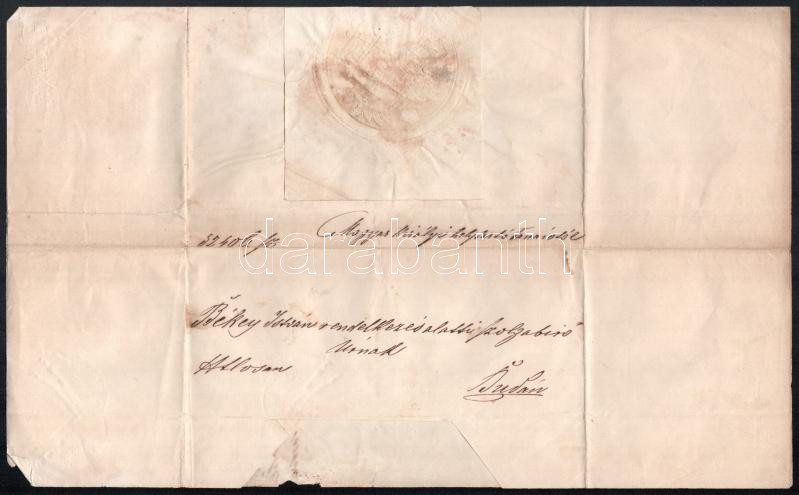 Magyar királyi helytartótanácstól
Békey István rendelkezés alatti szolgabiró
Urnak
Budán
darabanth